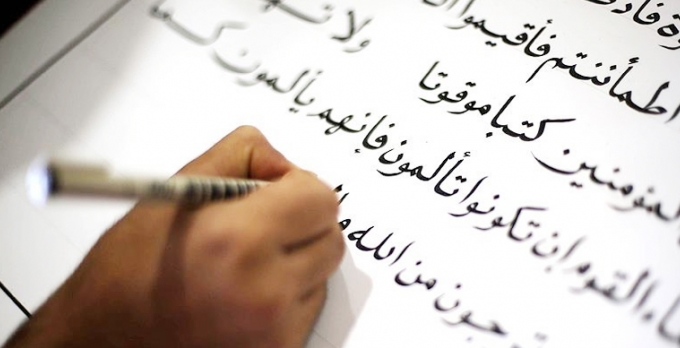 اطمأننتم فأقيموا
المؤمنين كتبا موقوتا ولا
القوم إن تكونوا تألمون فإنهم يألمون كما
جون من الله